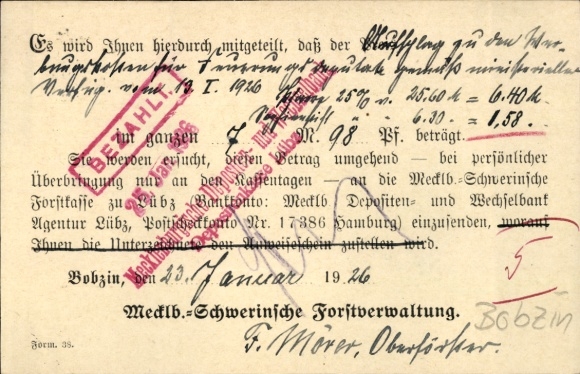 Es wird Ihnen hierdurch mitgeteilt, daß der Aufschlag zu den Wer-
bungskosten für Feuerungsdeputate gemäß ministerieller
Verfüg. vom 13. I. 1926
25% v. 25.60 M = 6.40 M.
" " 6.30 = 1.58.
im ganzen 7 M. 98 Pf. beträgt.
Sie werden ersucht, diesen Betrag umgehend — bei persönlicher
Überbringung nur an den Kassentagen — an die Mecklb.-Schwerinsche
Forstkasse zu Lübz Bankkonto: Meckl Depositen- und Wechselbank
Agentur Lübz, Postscheckkonto Nr. 17386 Hamburg) einzusenden, worauf
Ihnen die Unterzeichnete den Anweiseschein zustellen wird.
Bobzin, den 23. Januar 1926
Mecklb.-Schwerinsche Forstverwaltung.
F. Mörer, Oberförster.
Form. 38.
BEZAHLT
25. Jan. 1926
Mecklenburgische Depositen- und Wechselbank
Lübz
5
Bobzin